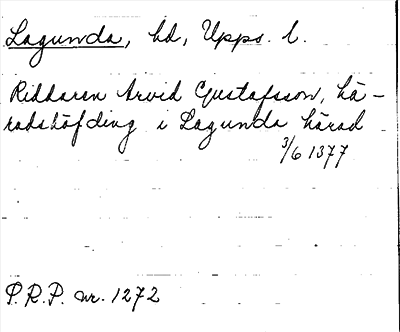 Lagunda, hd, Upps. l.
Riddaren Arvid Gustafsson, hä-
radshöfding i Lagunda härad
3/6 1377
P.R.P. nr. 1272